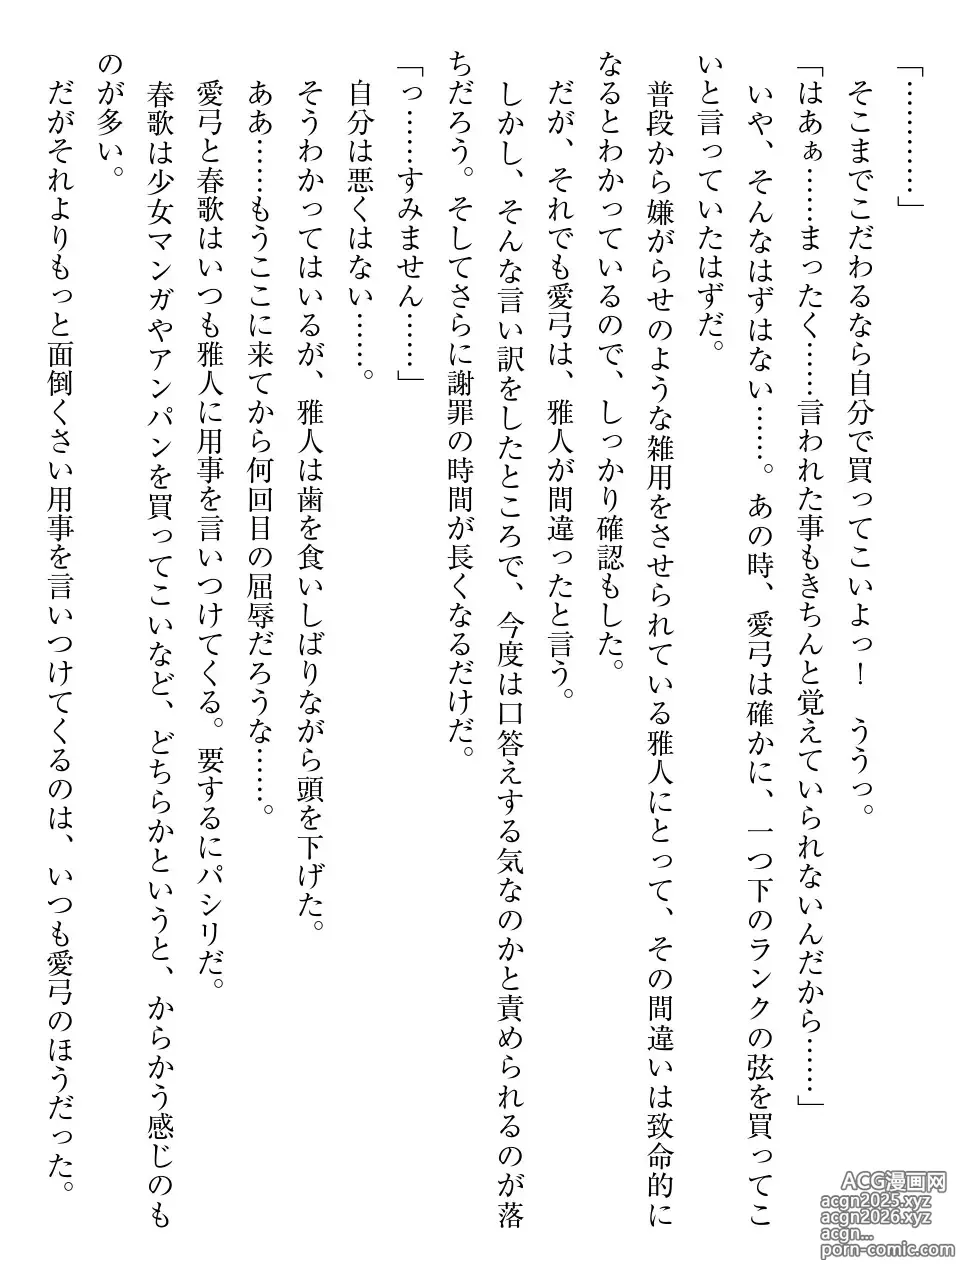 「…………」
　そこまでこだわるなら自分で買ってこいよっ！　ううっ。
「はあぁ……まったく……言われた事もきちんと覚えていられないんだから……」
　いや、そんなはずはない……。あの時、愛弓は確かに、一つ下のランクの弦を買ってこ
いと言っていたはずだ。
　普段から嫌がらせのような雑用をさせられている雅人にとって、その間違いは致命的に
なるとわかっているので、しっかり確認もした。
　だが、それでも愛弓は、雅人が間違ったと言う。
　しかし、そんな言い訳をしたところで、今度は口答えする気なのかと責められるのが落
ちだろう。そしてさらに謝罪の時間が長くなるだけだ。
「っ……すみません……」
　自分は悪くはない……。
　そうわかってはいるが、雅人は歯を食いしばりながら頭を下げた。
　ああ……もうここに来てから何回目の屈辱だろうな……。
　愛弓と春歌はいつも雅人に用事を言いつけてくる。要するにパシリだ。
　春歌は少女マンガやアンパンを買ってこいなど、どちらかというと、からかう感じのも
のが多い。
　だがそれよりもっと面倒くさい用事を言いつけてくるのは、いつも愛弓のほうだった。
ACG漫画网
acgn2025.xyz
acgn2026.xyz
acgn...
porn-comic.com